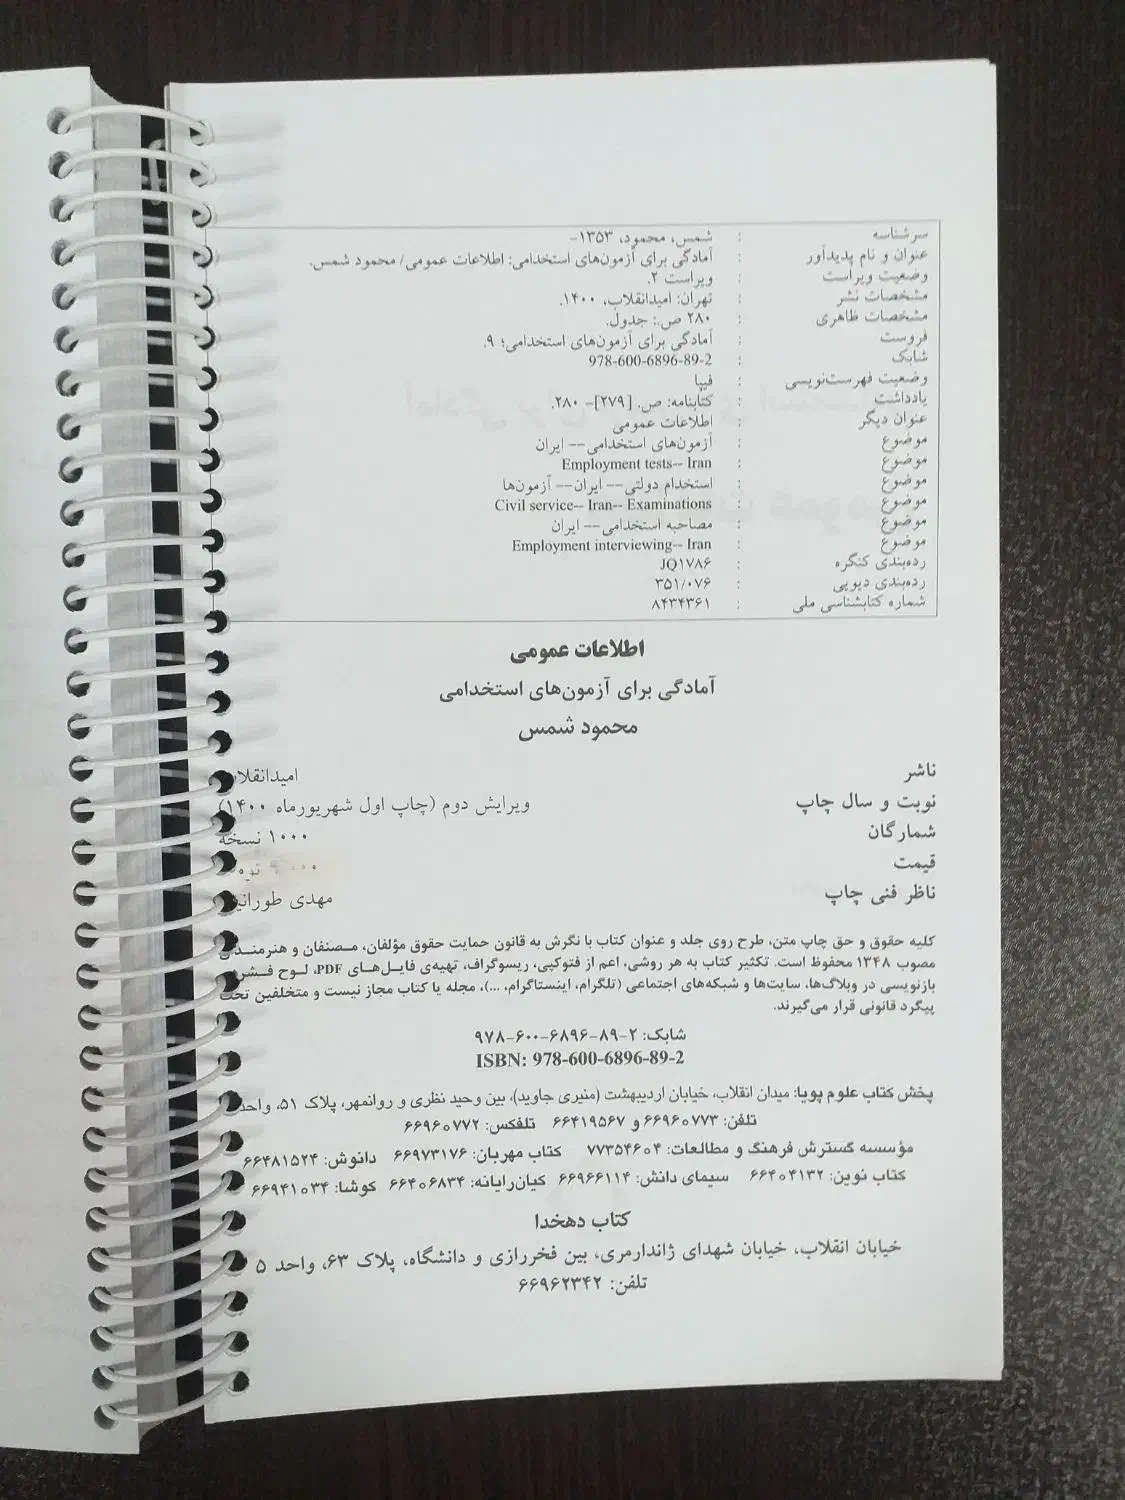 سرشناسه : شمس، محمود، ۱۳۵۳-
عنوان و نام پدیدآور : آمادگی برای آزمون‌های استخدامی: اطلاعات عمومی/ محمود شمس.
وضعیت ویراست : ویراست ۲.
مشخصات نشر : تهران: امیدانقلاب، ۱۴۰۰.
مشخصات ظاهری : ۲۸۰ ص.: جدول.
فروست : آمادگی برای آزمون‌های استخدامی؛ ۹.
شابک : 978-600-6896-89-2
وضعیت فهرست‌نویسی : فیپا
یادداشت : کتابنامه: ص. [۲۷۹]- ۲۸۰.
عنوان دیگر : اطلاعات عمومی
موضوع : آزمون‌های استخدامی-- ایران
موضوع : Employment tests-- Iran
موضوع : استخدام دولتی-- ایران-- آزمون‌ها
موضوع : Civil service-- Iran-- Examinations
موضوع : مصاحبه استخدامی-- ایران
موضوع : Employment interviewing-- Iran
رده‌بندی کنگره : JQ۱۷۸۶
رده‌بندی دیویی : ۳۵۱/۰۷۶
شماره کتابشناسی ملی : ۸۴۳۴۳۶۱
اطلاعات عمومی
آمادگی برای آزمون‌های استخدامی
محمود شمس
ناشر امیدانقلاب
نوبت و سال چاپ ویرایش دوم (چاپ اول شهریورماه ۱۴۰۰)
شمارگان ۱۰۰۰ نسخه
قیمت
ناظر فنی چاپ مهدی
کلیه حقوق و حق چاپ متن، طرح روی جلد و عنوان کتاب با نگرش به قانون حمایت حقوق مؤلفان، مصنفان و هنرمندان
مصوب ۱۳۴۸ محفوظ است. تکثیر کتاب به هر روشی، اعم از فتوکپی، ریسوگراف، تهیه‌ی فایل‌های PDF، لوح فشرده،
بازنویسی در وبلاگ‌ها، سایت‌ها و شبکه‌های اجتماعی (تلگرام، اینستاگرام، ...)، مجله یا کتاب مجاز نیست و متخلفین تحت
پیگرد قانونی قرار می‌گیرند.
شابک: ۲-۸۹-۶۸۹۶-۶۰۰-۹۷۸
ISBN: 978-600-6896-89-2
پخش کتاب علوم پویا: میدان انقلاب، خیابان اردیبهشت (منیری جاوید)، بین وحید نظری و روانمهر، پلاک ۵۱، واحد
تلفن: ۶۶۹۶۰۷۷۳ و ۶۶۴۱۹۵۶۷ تلفکس: ۶۶۹۶۰۷۷۲
مؤسسه گسترش فرهنگ و مطالعات: ۷۷۳۵۴۶۰۴ کتاب مهربان: ۶۶۹۷۳۱۷۶ دانوش: ۶۶۴۸۱۵۲۴
کتاب نوین: ۶۶۴۰۴۱۳۲ سیمای دانش: ۶۶۹۶۶۱۱۴ کیان‌رایانه: ۶۶۴۰۶۸۳۴ کوشا: ۶۶۹۴۱۰۳۴
کتاب دهخدا
خیابان انقلاب، خیابان شهدای ژاندارمری، بین فخررازی و دانشگاه، پلاک ۶۳، واحد ۵
تلفن: ۶۶۹۶۲۳۴۲